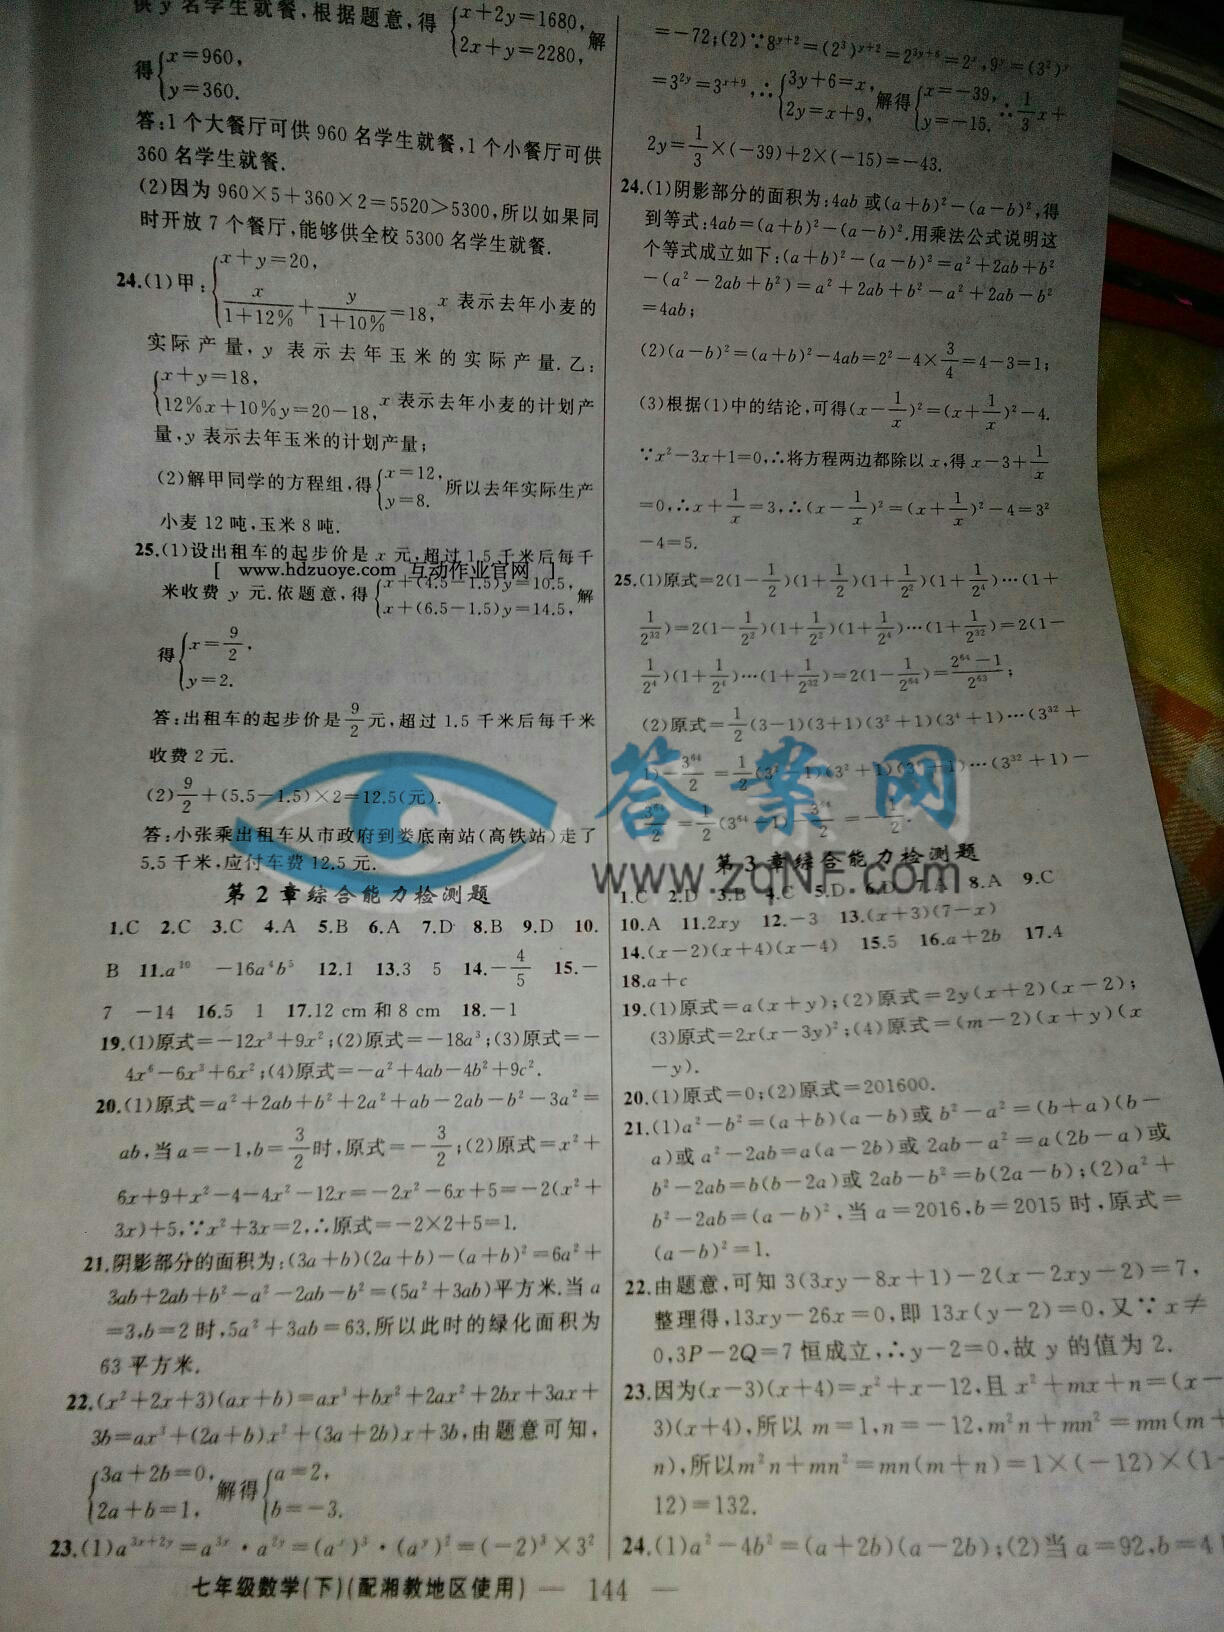 供y名学生就餐,根据题意,得{x+2y=1680, 2x+y=2280,解
得{x=960, y=360.
答:1个大餐厅可供960名学生就餐,1个小餐厅可供
360名学生就餐.
(2)因为960×5+360×2=5520>5300,所以如果同
时开放7个餐厅,能够供全校5300名学生就餐.
24.(1)甲:{x+y=20, x/(1+12%)+y/(1+10%)=18,x表示去年小麦的
实际产量,y表示去年玉米的实际产量.乙:
{x+y=18, 12%x+10%y=20-18,x表示去年小麦的计划产
量,y表示去年玉米的计划产量;
(2)解甲同学的方程组,得{x=12, y=8.所以去年实际生产
小麦12吨,玉米8吨.
25.(1)设出租车的起步价是x元,超过1.5千米后每千
[ www.hdzuoye.com 互动作业官网 ]
米收费y元.依题意,得{x+(4.5-1.5)y=10.5, x+(6.5-1.5)y=14.5,解
得{x=9/2, y=2.
答:出租车的起步价是9/2元,超过1.5千米后每千米
收费2元.
(2)9/2+(5.5-1.5)×2=12.5(元).
答:小张乘出租车从市政府到娄底南站(高铁站)走了
5.5千米,应付车费12.5元.
第2章综合能力检测题
1.C 2.C 3.C 4.A 5.B 6.A 7.D 8.B 9.D 10.
B 11.a¹⁰ -16a⁴b⁵ 12.1 13.3 5 14.-4/5 15.-
7 -14 16.5 1 17.12 cm和8 cm 18.-1
19.(1)原式=-12x³+9x²;(2)原式=-18a³;(3)原式=-
4x⁶-6x³+6x²;(4)原式=-a²+4ab-4b²+9c².
20.(1)原式=a²+2ab+b²+2a²+ab-2ab-b²-3a²=
ab,当a=-1,b=3/2时,原式=-3/2;(2)原式=x²+
6x+9+x²-4-4x²-12x=-2x²-6x+5=-2(x²+
3x)+5,∵x²+3x=2,∴原式=-2×2+5=1.
21.阴影部分的面积为:(3a+b)(2a+b)-(a+b)²=6a²+
3ab+2ab+b²-a²-2ab-b²=(5a²+3ab)平方米.当a
=3,b=2时,5a²+3ab=63.所以此时的绿化面积为
63平方米.
22.(x²+2x+3)(ax+b)=ax³+bx²+2ax²+2bx+3ax+
3b=ax³+(2a+b)x²+(3a+2b)x+3b,由题意可知,
{3a+2b=0, 2a+b=1,解得{a=2, b=-3.
23.(1)a³ˣ⁺²ʸ=a³ˣ·a²ʸ=(aˣ)³·(aʸ)²=(-2)³×3²
=-72;(2)∵8ʸ⁺²=(2³)ʸ⁺²=2³ʸ⁺⁶=2ˣ,9ʸ=(3²)ʸ
=3²ʸ=3ˣ⁺⁹,∴{3y+6=x, 2y=x+9,解得{x=-39, y=-15.∴1/3x+
2y=1/3×(-39)+2×(-15)=-43.
24.(1)阴影部分的面积为:4ab或(a+b)²-(a-b)²,得
到等式:4ab=(a+b)²-(a-b)².用乘法公式说明这
个等式成立如下:(a+b)²-(a-b)²=a²+2ab+b²
-(a²-2ab+b²)=a²+2ab+b²-a²+2ab-b²
=4ab;
(2)(a-b)²=(a+b)²-4ab=2²-4×3/4=4-3=1;
(3)根据(1)中的结论,可得(x-1/x)²=(x+1/x)²-4.
∵x²-3x+1=0,∴将方程两边都除以x,得x-3+1/x
=0,∴x+1/x=3,∴(x-1/x)²=(x+1/x)²-4=3²
-4=5.
25.(1)原式=2(1-1/2)(1+1/2)(1+1/2²)(1+1/2⁴)…(1+
1/2³²)=2(1-1/2²)(1+1/2²)(1+1/2⁴)…(1+1/2³²)=2(1-
1/2⁴)(1+1/2⁴)…(1+1/2³²)=2(1-1/2⁶⁴)=(2⁶⁴-1)/2⁶³;
(2)原式=1/2(3-1)(3+1)(3²+1)(3⁴+1)…(3³²+
1)-3⁶⁴/2=1/2(3²-1)(3²+1)(3⁴+1)…(3³²+1)-
3⁶⁴/2=1/2(3⁶⁴-1)-3⁶⁴/2=-1/2.
答案网
www.zqNF.com
第3章综合能力检测题
1.C 2.D 3.B 4.C 5.D 6.D 7.A 8.A 9.C
10.A 11.2xy 12.-3 13.(x+3)(7-x)
14.(x-2)(x+4)(x-4) 15.5 16.a+2b 17.4
18.a+c
19.(1)原式=a(x+y);(2)原式=2y(x+2)(x-2);
(3)原式=2x(x-3y)²;(4)原式=(m-2)(x+y)(x
-y).
20.(1)原式=0;(2)原式=201600.
21.(1)a²-b²=(a+b)(a-b)或b²-a²=(b+a)(b-
a)或a²-2ab=a(a-2b)或2ab-a²=a(2b-a)或
b²-2ab=b(b-2a)或2ab-b²=b(2a-b);(2)a²+
b²-2ab=(a-b)²,当a=2016,b=2015时,原式=
(a-b)²=1.
22.由题意,可知3(3xy-8x+1)-2(x-2xy-2)=7,
整理得,13xy-26x=0,即13x(y-2)=0,又∵x≠
0,3P-2Q=7恒成立,∴y-2=0,故y的值为2.
23.因为(x-3)(x+4)=x²+x-12,且x²+mx+n=(x-
3)(x+4),所以m=1,n=-12,m²n+mn²=mn(m+
n),所以m²n+mn²=mn(m+n)=1×(-12)×(1-
12)=132.
24.(1)a²-4b²=(a+2b)(a-2b);(2)当a=92,b=4
七年级数学(下)(配湘教地区使用) — 144 —